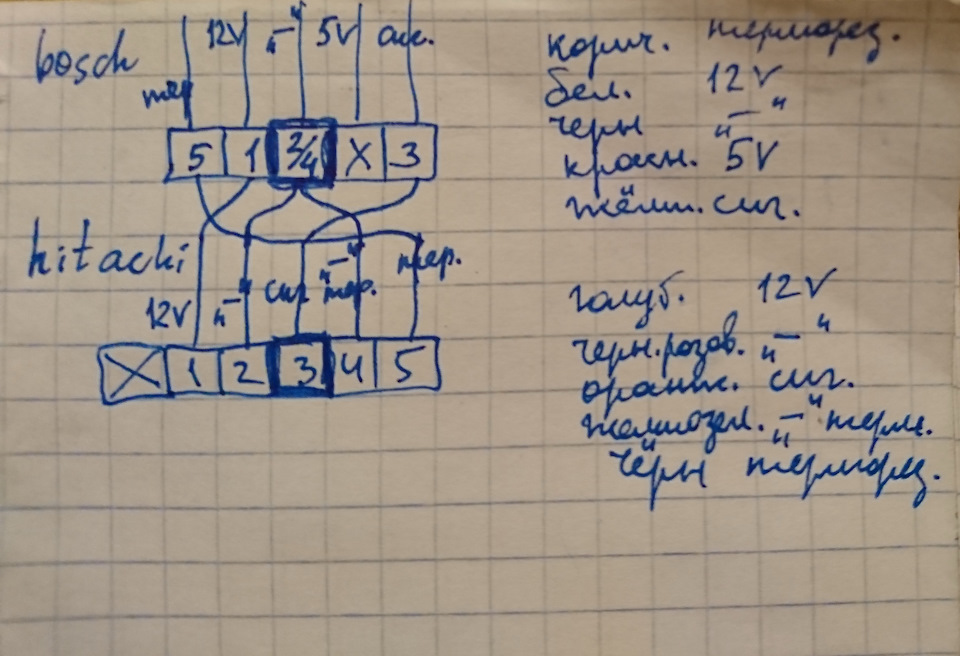 bosch
12V "–" 5V сиг.
тер
5 1 2/4 X 3
hitachi
12V "–" сиг "–" тер. тер.
X 1 2 3 4 5
корич. терморез.
бел. 12V
черн "–"
красн. 5V
жёлт. сиг.
голуб. 12V
черн.розов. "–"
оранж. сиг.
желтозел. "–" терм.
чёрн терморез.